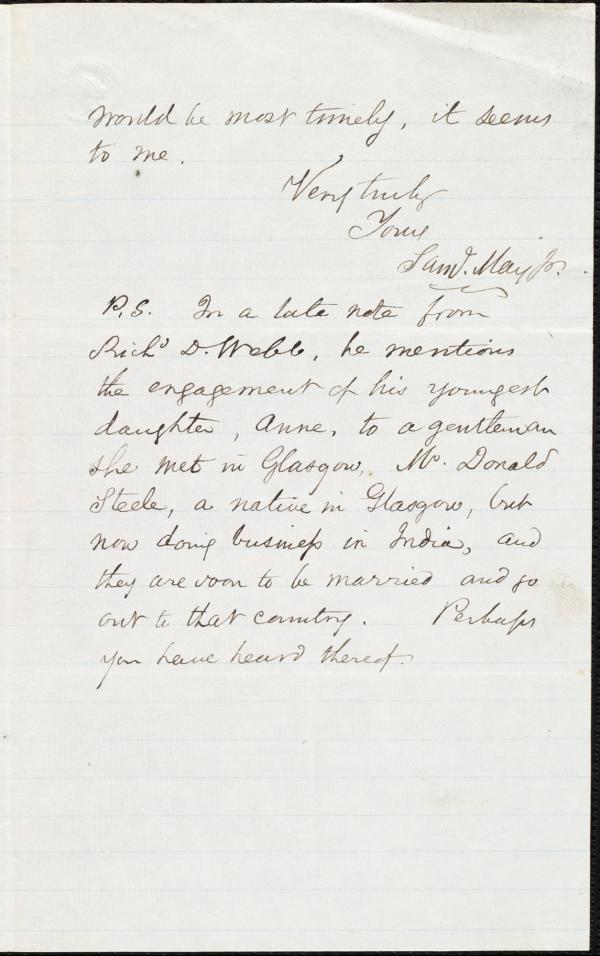 would be most timely, it seems
to me.
Very truly
Yours
Saml. May Jr.
P.S. In a late note from
Richd D. Webb, he mentions
the engagement of his youngest
daughter, Anne, to a gentleman
she met in Glasgow, Mr. Donald
Steele, a native in Glasgow, but
now doing business in India, and
they are soon to be married and go
out to that country. Perhaps
you have heard thereof.